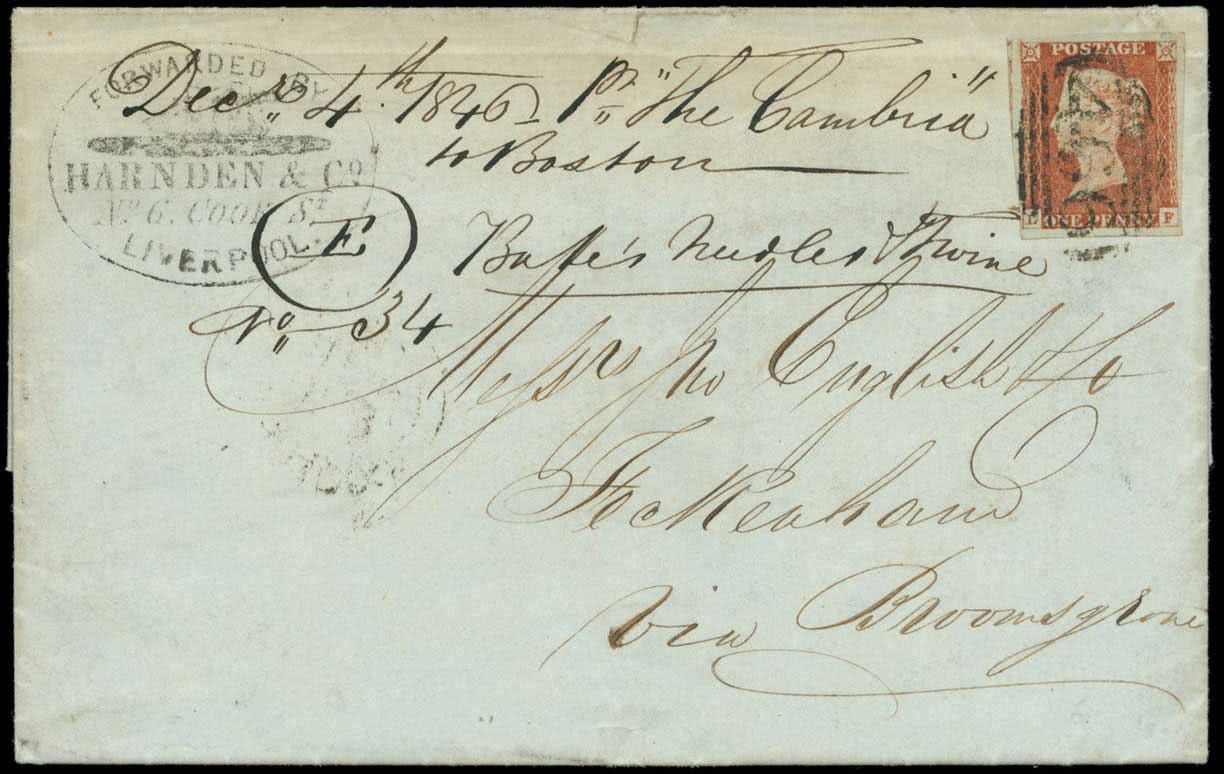 FORWARDED BY
HARNDEN & Co
No 6. COOK St
LIVERPOOL.
Decr 4th 1846 pr "The Cambria"
to Boston
E
Needles & Twine
No 34
POSTAGE
ONE PENNY F
Messrs Jno English & Co
Feckenham
via Bromsgrove